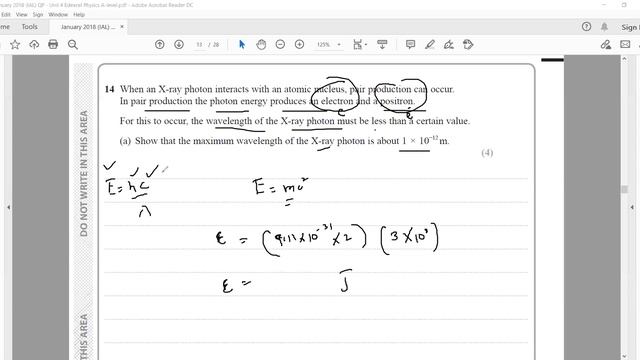 January 2018 (IAL) QP - Unit 4 Edexcel Physics A-level.pdf - Adobe Acrobat Reader DC
View Sign Window Help
Tools January 2018 (IAL)... × Sign In
13 / 28 125%
14 When an X-ray photon interacts with an atomic nucleus, pair production can occur.
In pair production the photon energy produces an electron and a positron.
For this to occur, the wavelength of the X-ray photon must be less than a certain value.
(a) Show that the maximum wavelength of the X-ray photon is about 1 × 10⁻¹² m.
(4)
E = hc
λ
E = mc²
E = (9.11 × 10⁻³¹ × 2) (3 × 10⁸)
E = J
DO NOT WRITE IN THIS AREA
THIS AREA